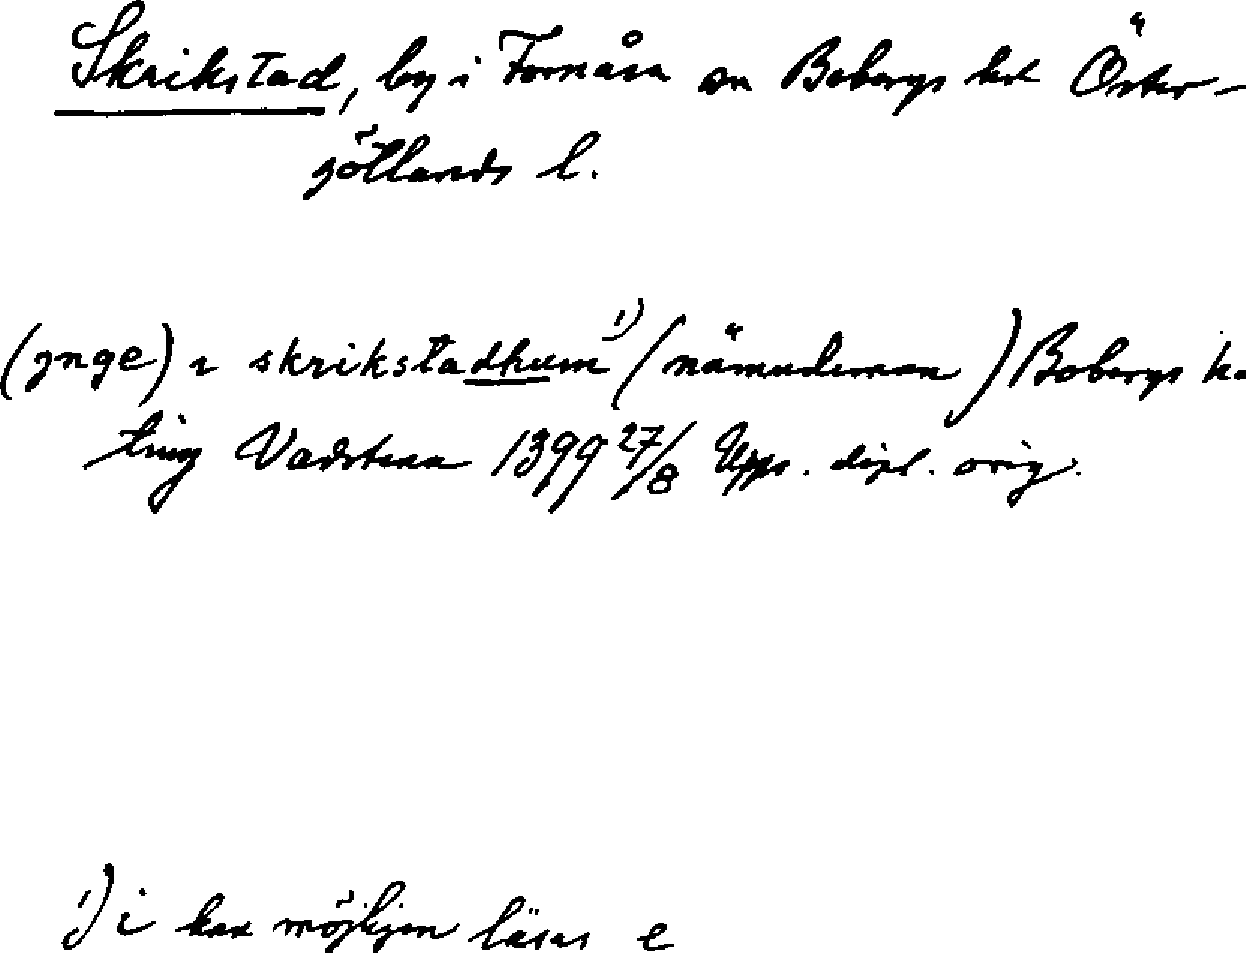 Skrikstad, by i Fornåsa sn Bobergs hd Öster-
götlands l.
(ynge) ı skrikstadhum¹⁾ (nämndeman) Bobergs
ting Vadstena 1399 27/8 Upps. dipl. orig.
¹⁾ i kan möjligen läsas e